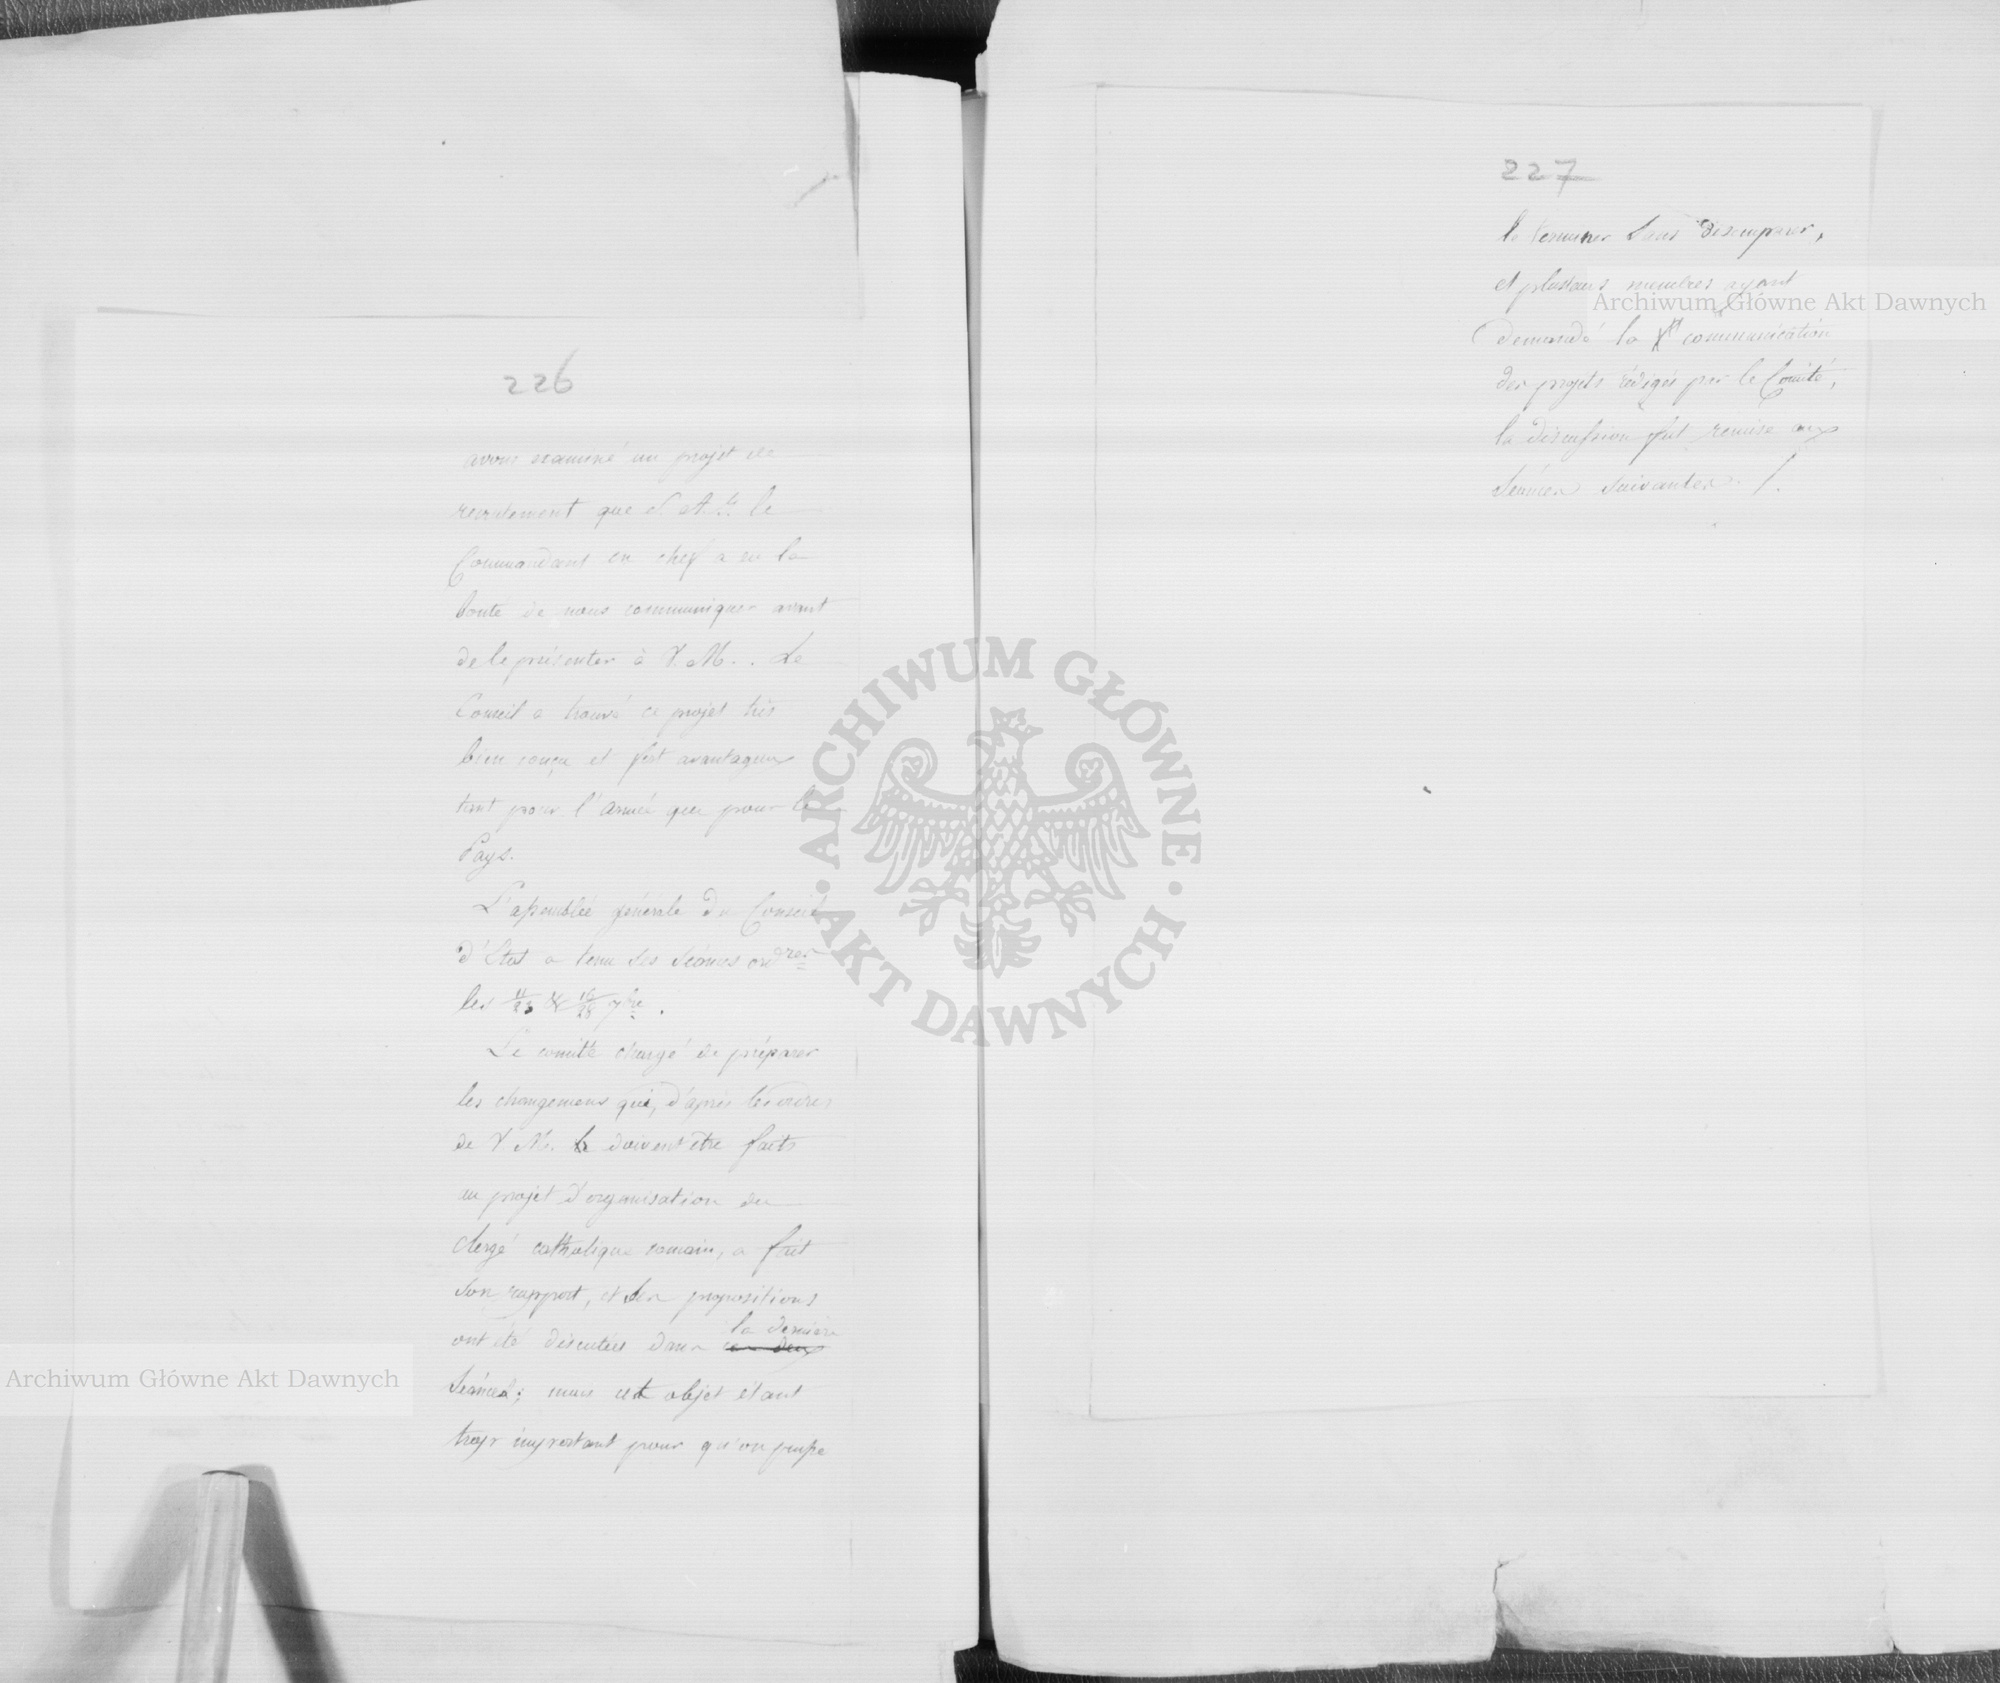 226
avons examiné un projet de
recrutement que S. A. I. le
Commandant en chef a eu la
bonté de nous communiquer avant
de le présenter à V. M.. Le
Conseil a trouvé ce projet très
bien conçu et fort avantageux
tant pour l'armée que pour le
Pays.
L'assemblée générale du Conseil
d'Etat a tenu ses séances ord.res
les 11/23 & 16/28 7bre.
Le comité chargé de préparer
les changemens qui, d'après les ordres
de V. M. doivent être faits
au projet d'organisation du
clergé catholique romain, a fait
son rapport, et ses propositions
la dernière
ont été discutées dans ces deux
séances; mais cet objet étant
trop important pour qu'on puisse
227
le terminer sans désemparer,
et plusieurs membres ayant
demandé la communication
des projets rédigés par le Comité,
la discussion fut remise aux
séances suivantes. /.
Archiwum Główne Akt Dawnych
Archiwum Główne Akt Dawnych
ARCHIWUM GŁÓWNE
AKT DAWNYCH